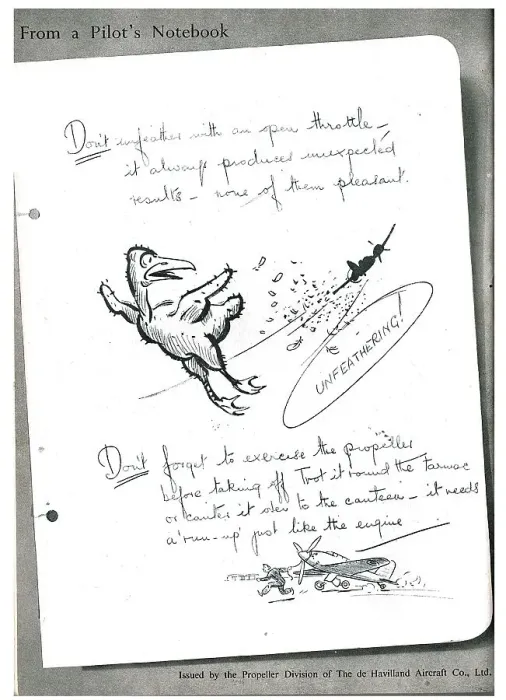 From a Pilot's Notebook
Don't unfeather with an open throttle –
it always produces unexpected
results – none of them pleasant.
UNFEATHERING!
Don't forget to exercise the propeller
before taking off Trot it round the Tarmac
or canter it over to the canteen – it needs
a 'run-up' just like the engine
Issued by the Propeller Division of The de Havilland Aircraft Co., Ltd.